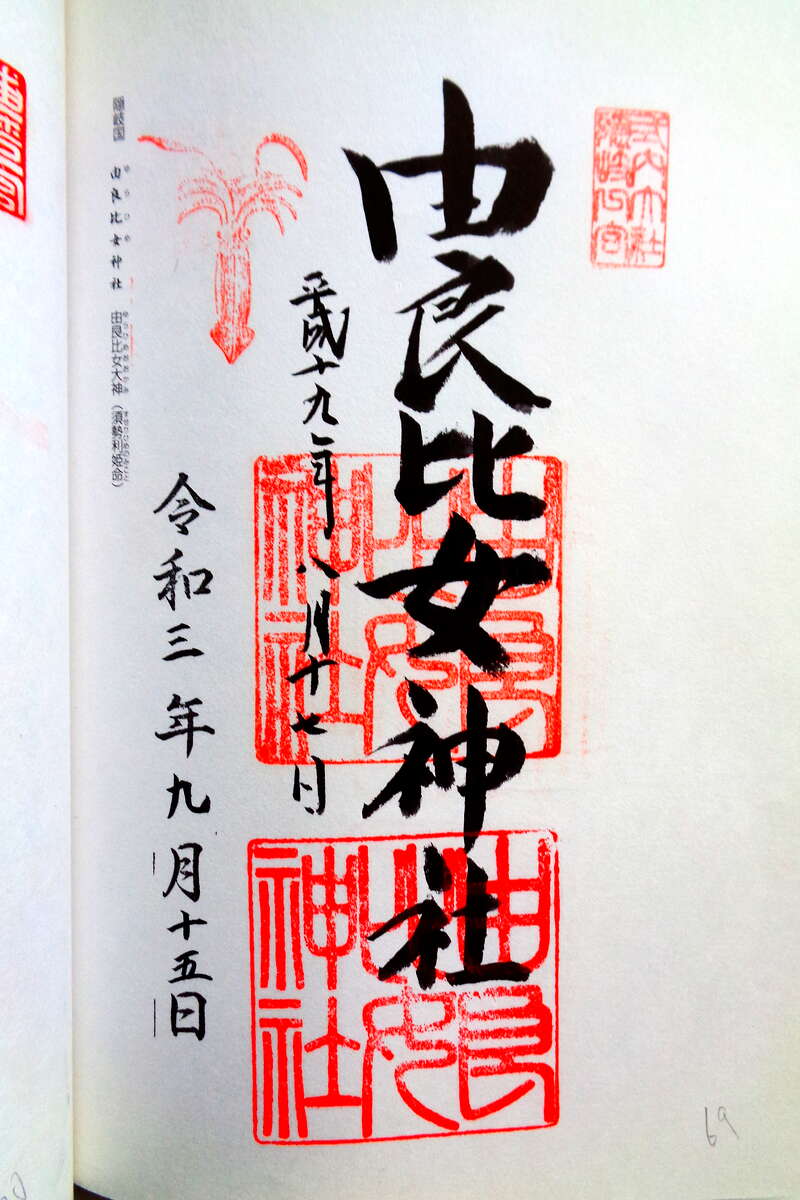 式内大社
隠岐一宮
由良比女神社
平成十九年八月十七日
令和三年九月十五日
隠岐国 由良比女神社 由良比女大神（須勢利姫命）
ゆらひめ
由良
比女
神社
由良
比女
神社
69